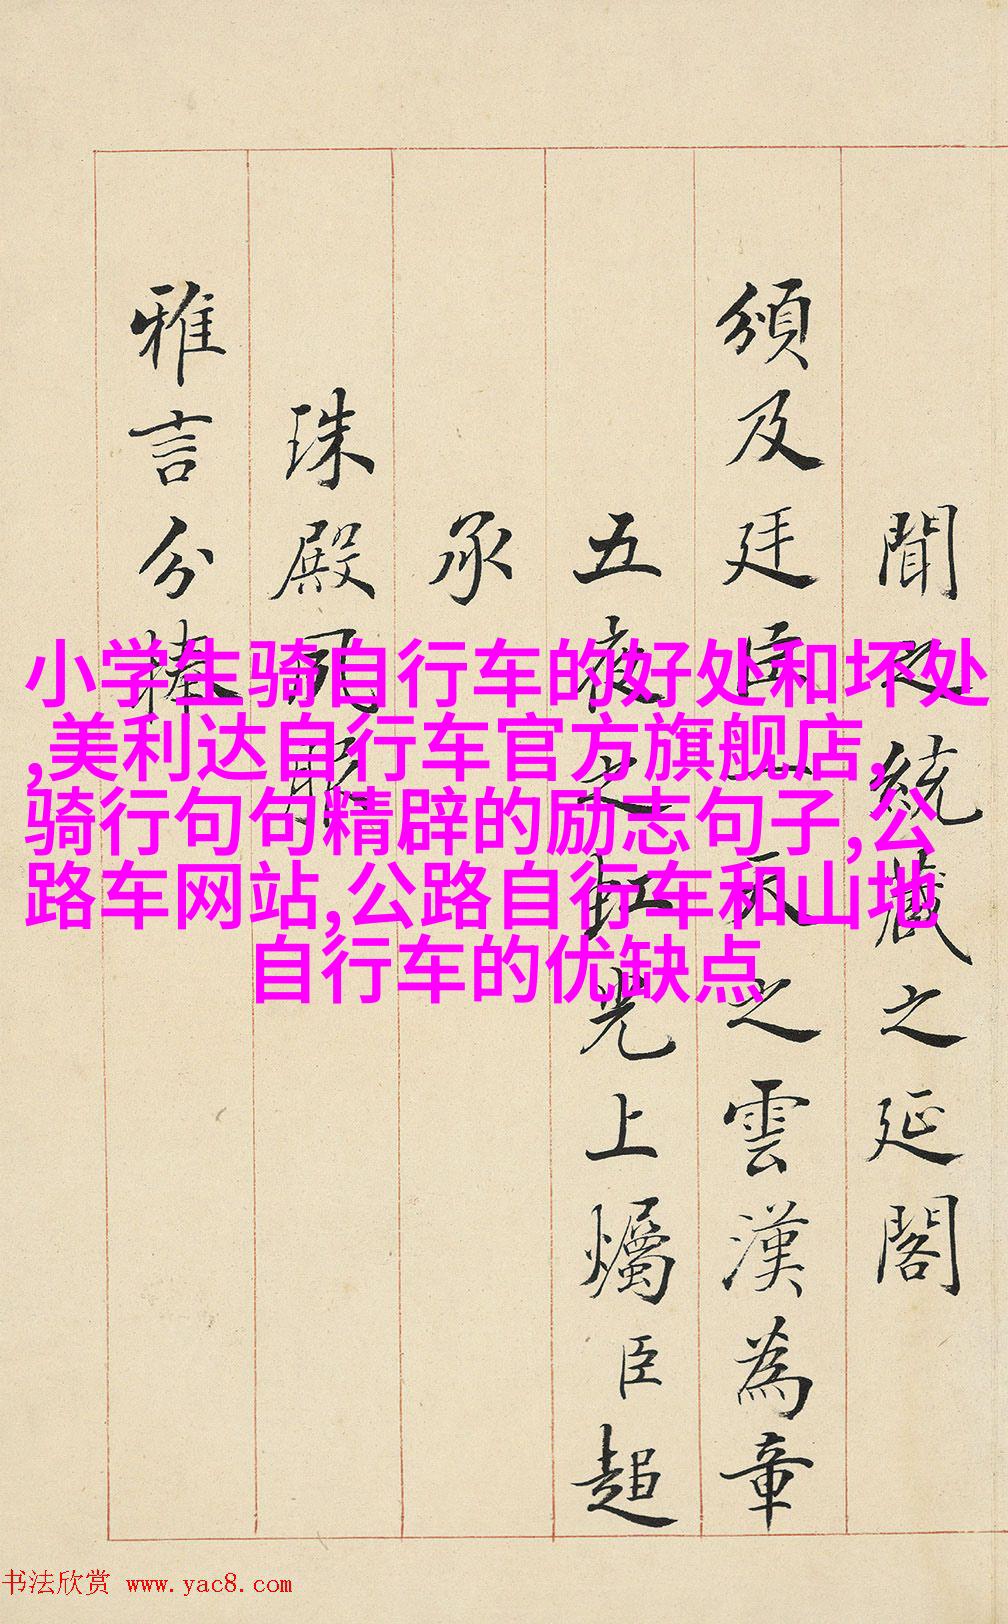 聞之統藏之延閣
頒及廷臣一天之雲漢為章
五夜之虹光上燭臣超
承
珠殿
雅言分捧
小学生骑自行车的好处和坏处
,美利达自行车官方旗舰店,
骑行句句精辟的励志句子,公
路车网站,公路自行车和山地
自行车的优缺点
书法欣赏 www.yac8.com